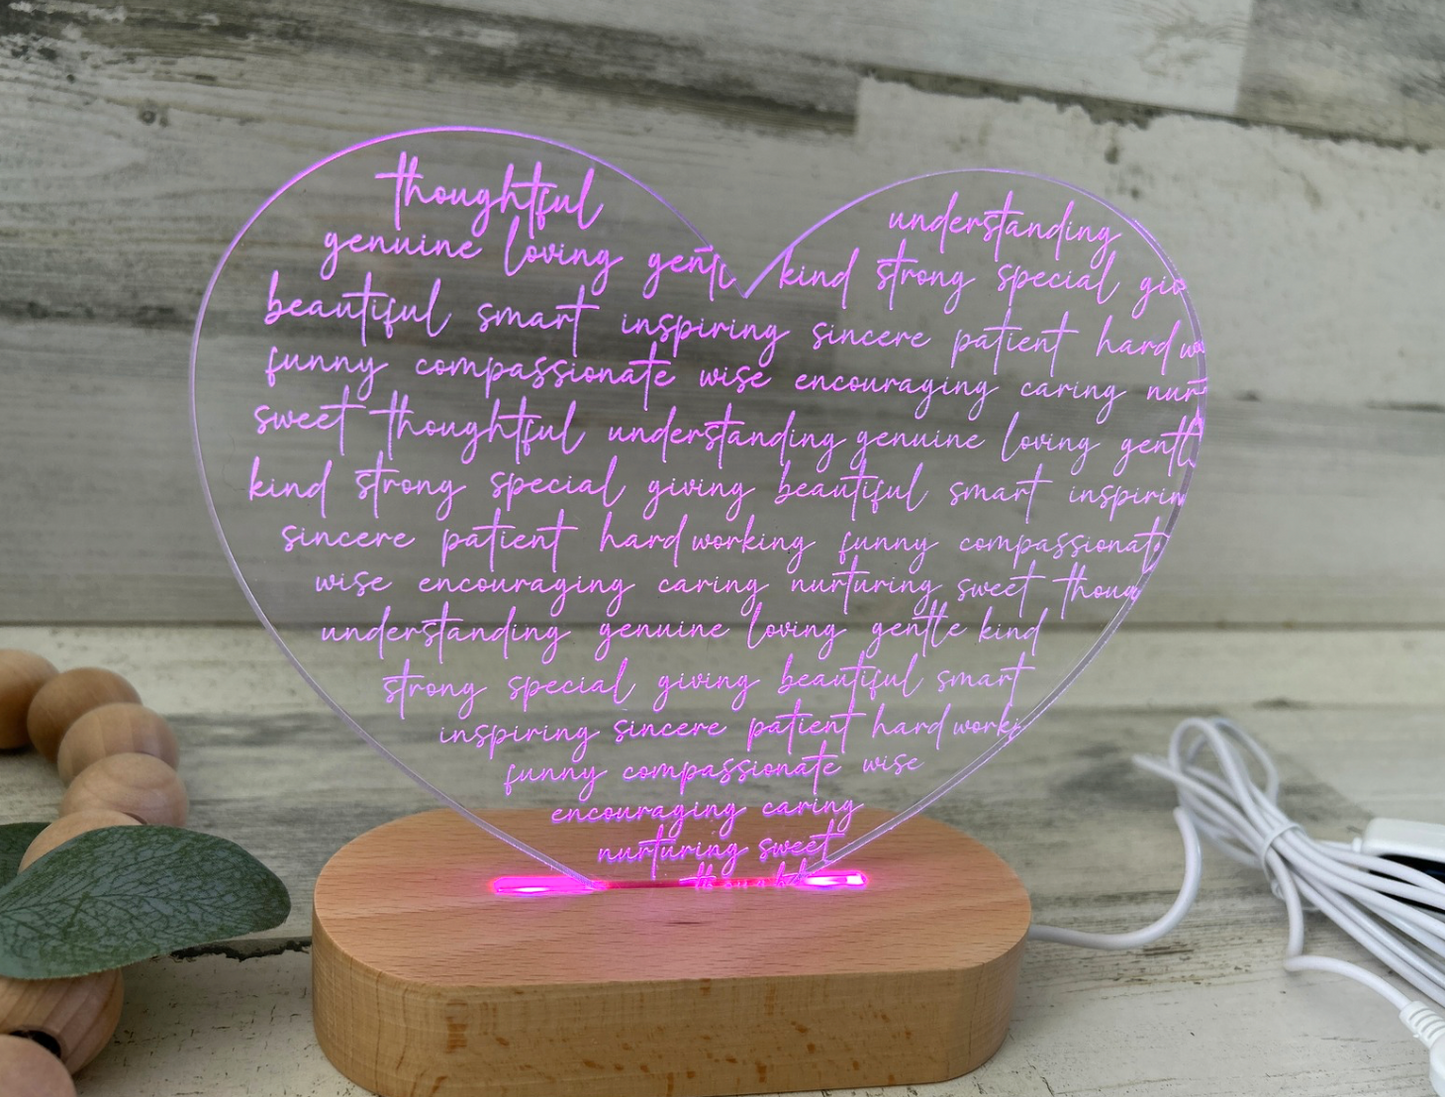 thoughtful
understanding
genuine loving gentl
kind strong special giv
beautiful smart inspiring sincere patient hard wo
funny compassionate wise encouraging caring nurt
sweet thoughtful understanding genuine loving gentl
kind strong special giving beautiful smart inspirin
sincere patient hard working funny compassionat
wise encouraging caring nurturing sweet thoug
understanding genuine loving gentle kind
strong special giving beautiful smart
inspiring sincere patient hard worki
funny compassionate wise
encouraging caring
nurturing sweet